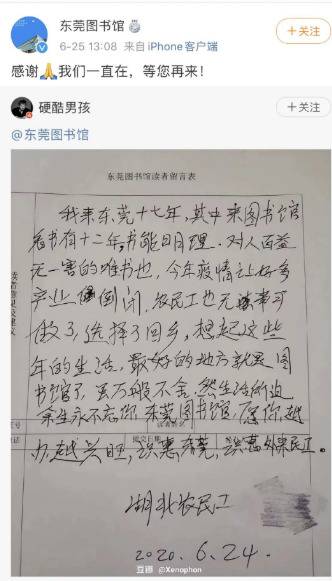 东莞图书馆
6-25 13:08 来自iPhone客户端
+关注
感谢🙏我们一直在，等您再来！
硬酷男孩
+关注
@东莞图书馆
东莞图书馆读者留言表
我来东莞十七年，其中来图书馆
看书有十二年，书能明理，对人百益
无一害的唯书也，今年疫情让好多
产业倒闭，农民工也无事可
做了，选择了回乡，想起这些
年的生活，最好的地方就是图
书馆了，虽万般不舍，然生活所迫，
余生永不忘你，东莞图书馆，愿你越
办越兴旺，识惠东莞，识惠外来民工。
湖北农民工
2020.6.24.
豆瓣 @Xenophon